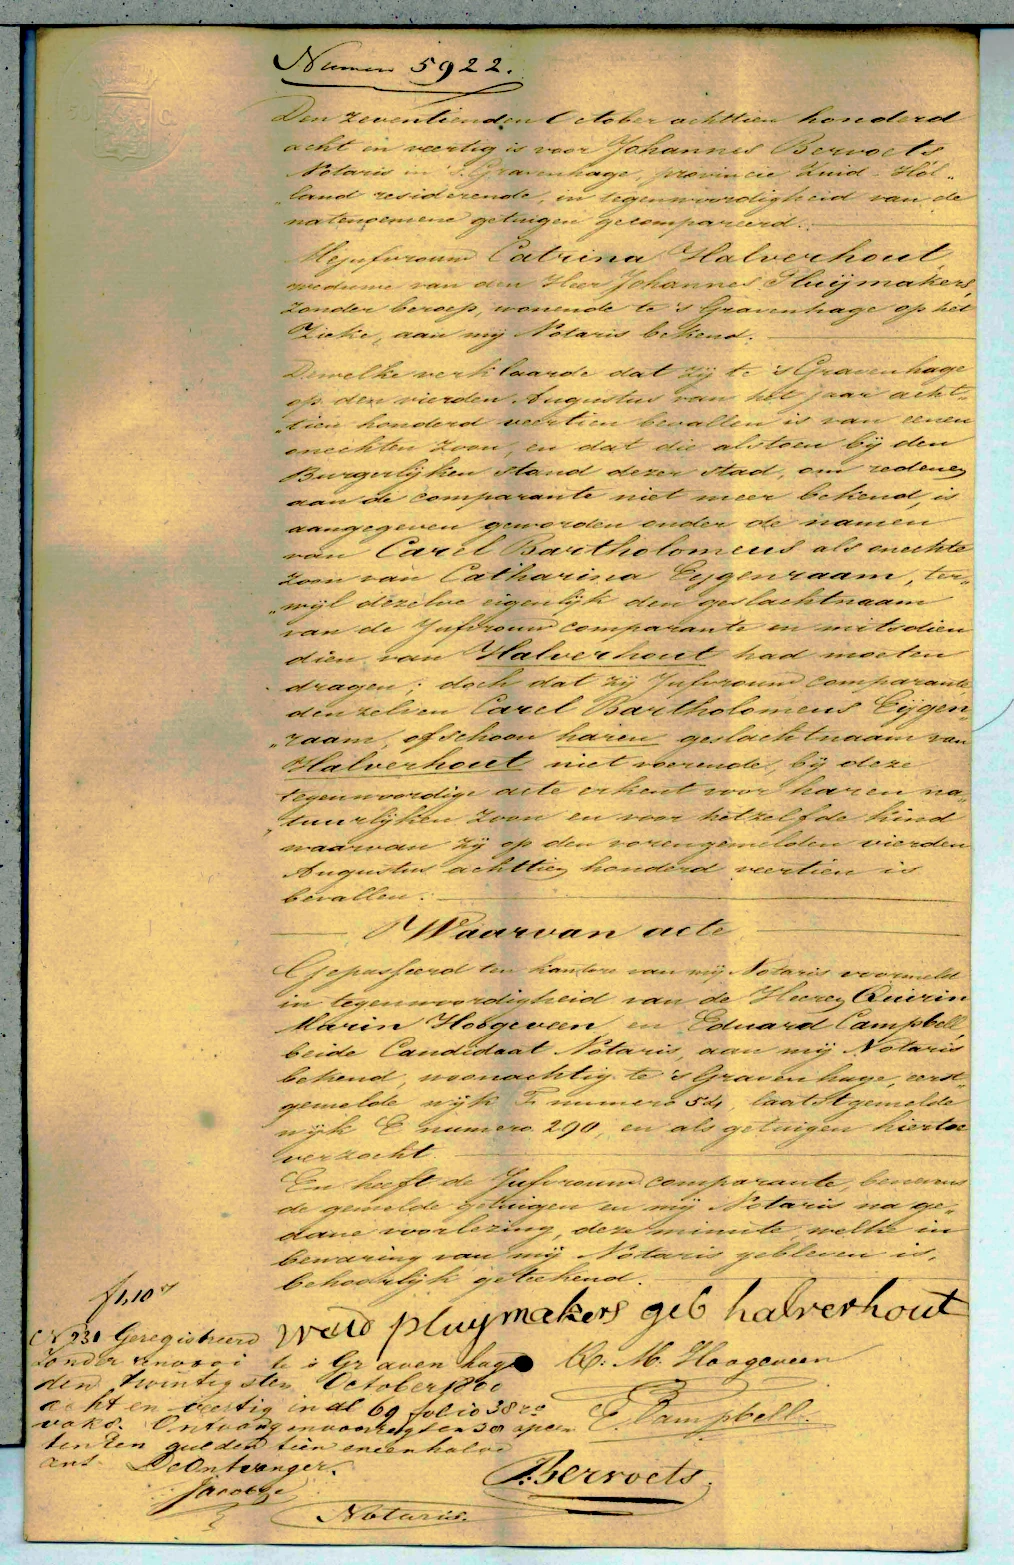 Numero 5922.
Den zeventienden October achttien honderd
acht en veertig is voor Johannes Bervoets
Notaris in 's Gravenhage, provincie Zuid-Hol-
„land residerende, in tegenwoordigheid van de
natenoemene getuigen gecompareerd.
Mejufvrouw Catrina Halverhout,
weduwe van den Heer Johannes Pluijmakers,
zonder beroep, wonende te 's Gravenhage op het
Zieke, aan mij Notaris bekend.
Dewelke verklaarde dat zij te 's Gravenhage
op den vierden Augustus van het jaar acht-
„tien honderd veertien bevallen is van eenen
onechten zoon, en dat die alstoen bij den
Burgerlijken stand dezer stad, om redenen
aan de comparante niet meer bekend, is
aangegeven geworden onder de namen
van Carel Bartholomeus als onechte
zoon van Catharina Eygenraam, ter-
„wijl dezelve eigenlijk den geslachtnaam
van de Jufvrouw comparante en mitsdien
dien van Halverhout had moeten
dragen; doch dat zij Jufvrouw comparante
denzelven Carel Bartholomeus Eijgen-
„raam, ofschoon haren geslachtnaam van
Halverhout niet voerende, bij deze
tegenwoordige acte erkent voor haren na-
„tuurlijken zoon en voor hetzelfde kind
waarvan zij op den vorengemelden vierden
Augustus achttien honderd veertien is
bevallen.
Waarvan acte
Gepasseerd ten kantore van mij Notaris voormeld
in tegenwoordigheid van de Heeren Quirin
Marin Hoogeveen en Eduard Campbell,
beide Candidaat Notaris, aan mij Notaris
bekend, woonachtig te 's Gravenhage, eerst-
gemelde wijk F numero 54, laatstgemelde
wijk E numero 290, en als getuigen hiertoe
verzocht.
En heeft de Jufvrouw comparante, benevens
de gemelde getuigen en mij Notaris na ge-
dane voorlezing, deze minute, welke in
bewaring van mij Notaris gebleven is,
behoorlijk geteekend.
wed pluymakers geb halverhout
Q. M. Hoogeveen
E. Campbell.
Bervoets
Notaris.
f 1,10
N 231 Geregistreerd
zonder renvooi te 's Gravenhage
den twintigsten October 1800
acht en veertig in dl 69 folio 38
vak 8. Ontvang
gulden tien eneenhalve
cent. De Ontvanger.